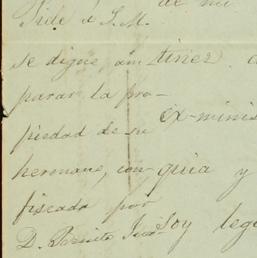 de mi
Pide á S.M.
se digne am
parar la pro-
piedad de su
hermano, con-
fiscada por
D. Benito
tinez
ex-minis
quia y
Soy leg